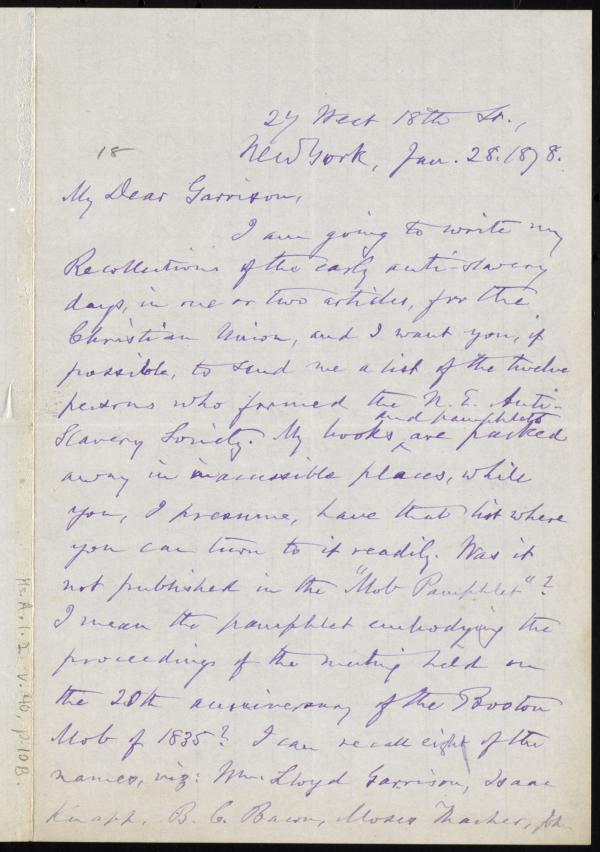 27 West 18th St.,
18
New York, Jan. 28. 1878.
My Dear Garrison,
I am going to write my
Recollections of the early anti-slavery
days, in one or two articles, for the
Christian Union, and I want you, if
possible, to send me a list of the twelve
persons who formed the N. E. Anti-
Slavery Society. My books and pamphlets are packed
away in inaccessible places, while
you, I presume, have that list where
you can turn to it readily. Was it
not published in the "Mob Pamphlet"?
I mean the pamphlet embodying the
proceedings of the meeting held on
the 20th anniversary of the Boston
Mob of 1835? I can recall eight of the
names, viz: Wm. Lloyd Garrison, Isaac
Knapp, B. C. Bacon, Moses Thacher, John
Ms. A. 1. 2 v. 40, p. 10B.